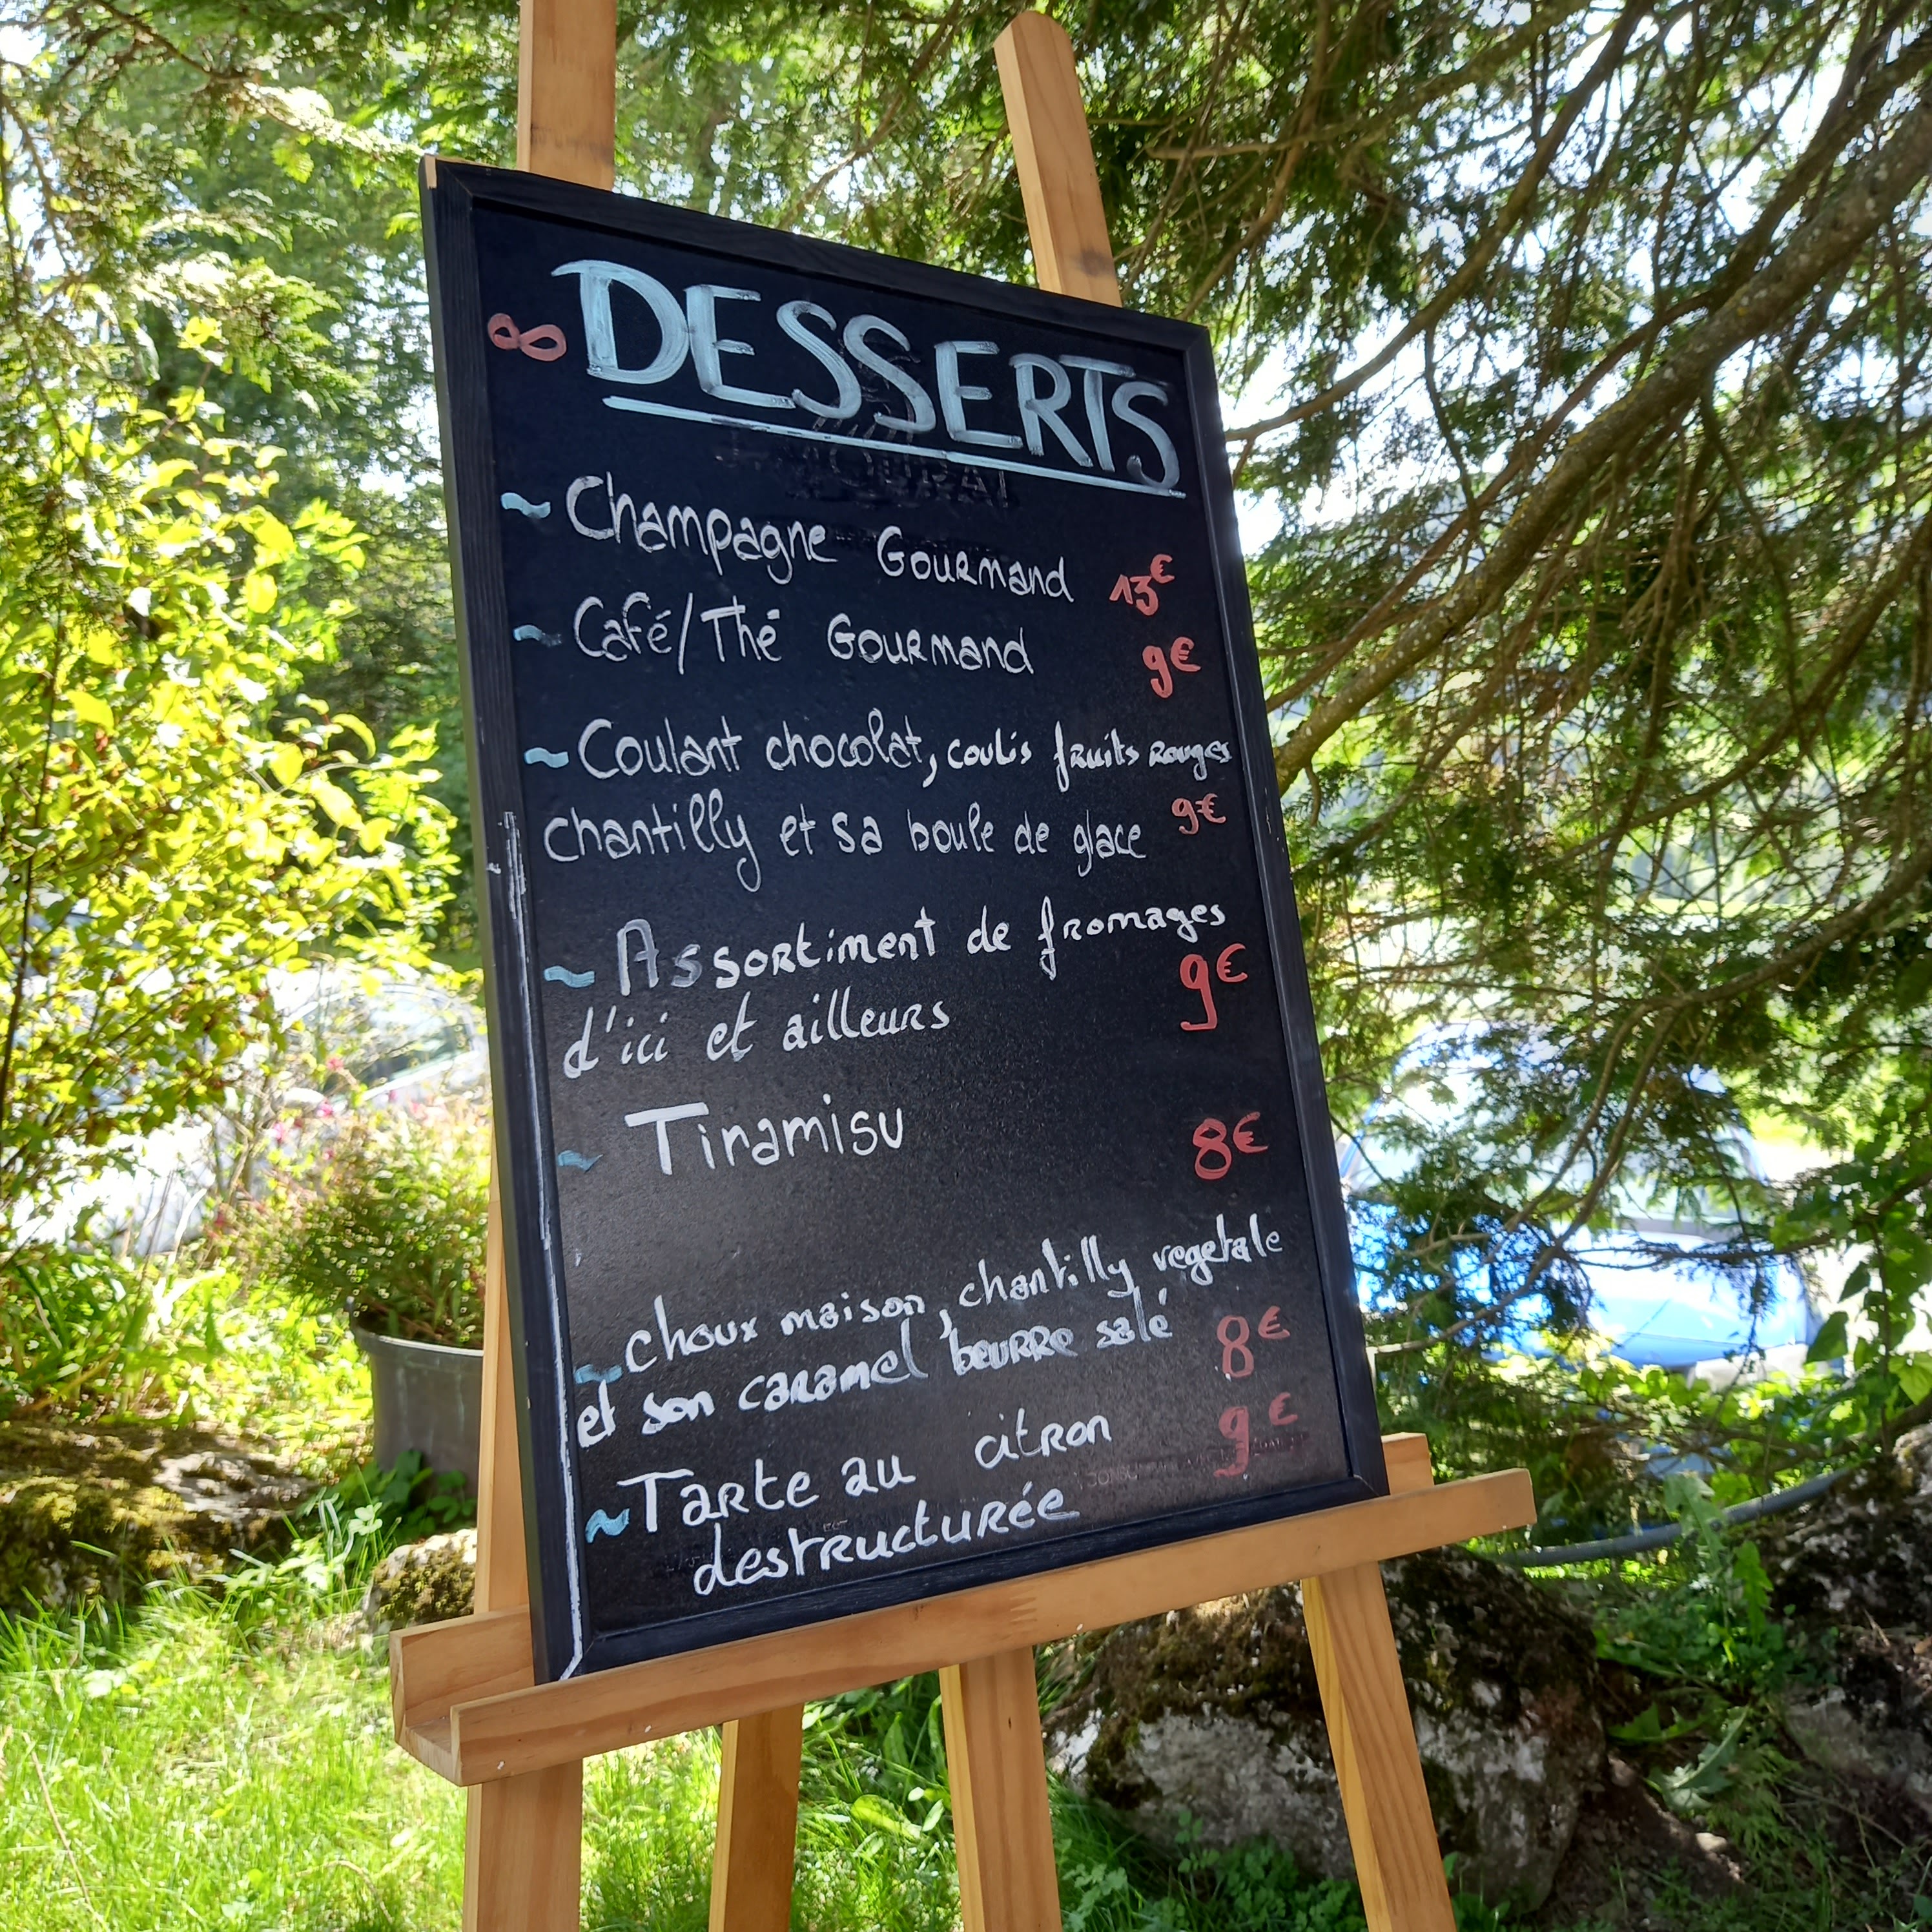 DESSERTS
~ Champagne Gourmand 13€
~ Café/Thé Gourmand 9€
~ Coulant chocolat, coulis fruits rouges
chantilly et sa boule de glace 9€
~ Assortiment de fromages
d'ici et ailleurs 9€
~ Tiramisu 8€
~ choux maison, chantilly vegetale
et son caramel beurre salé 8€
~ Tarte au citron 9€
destructurée